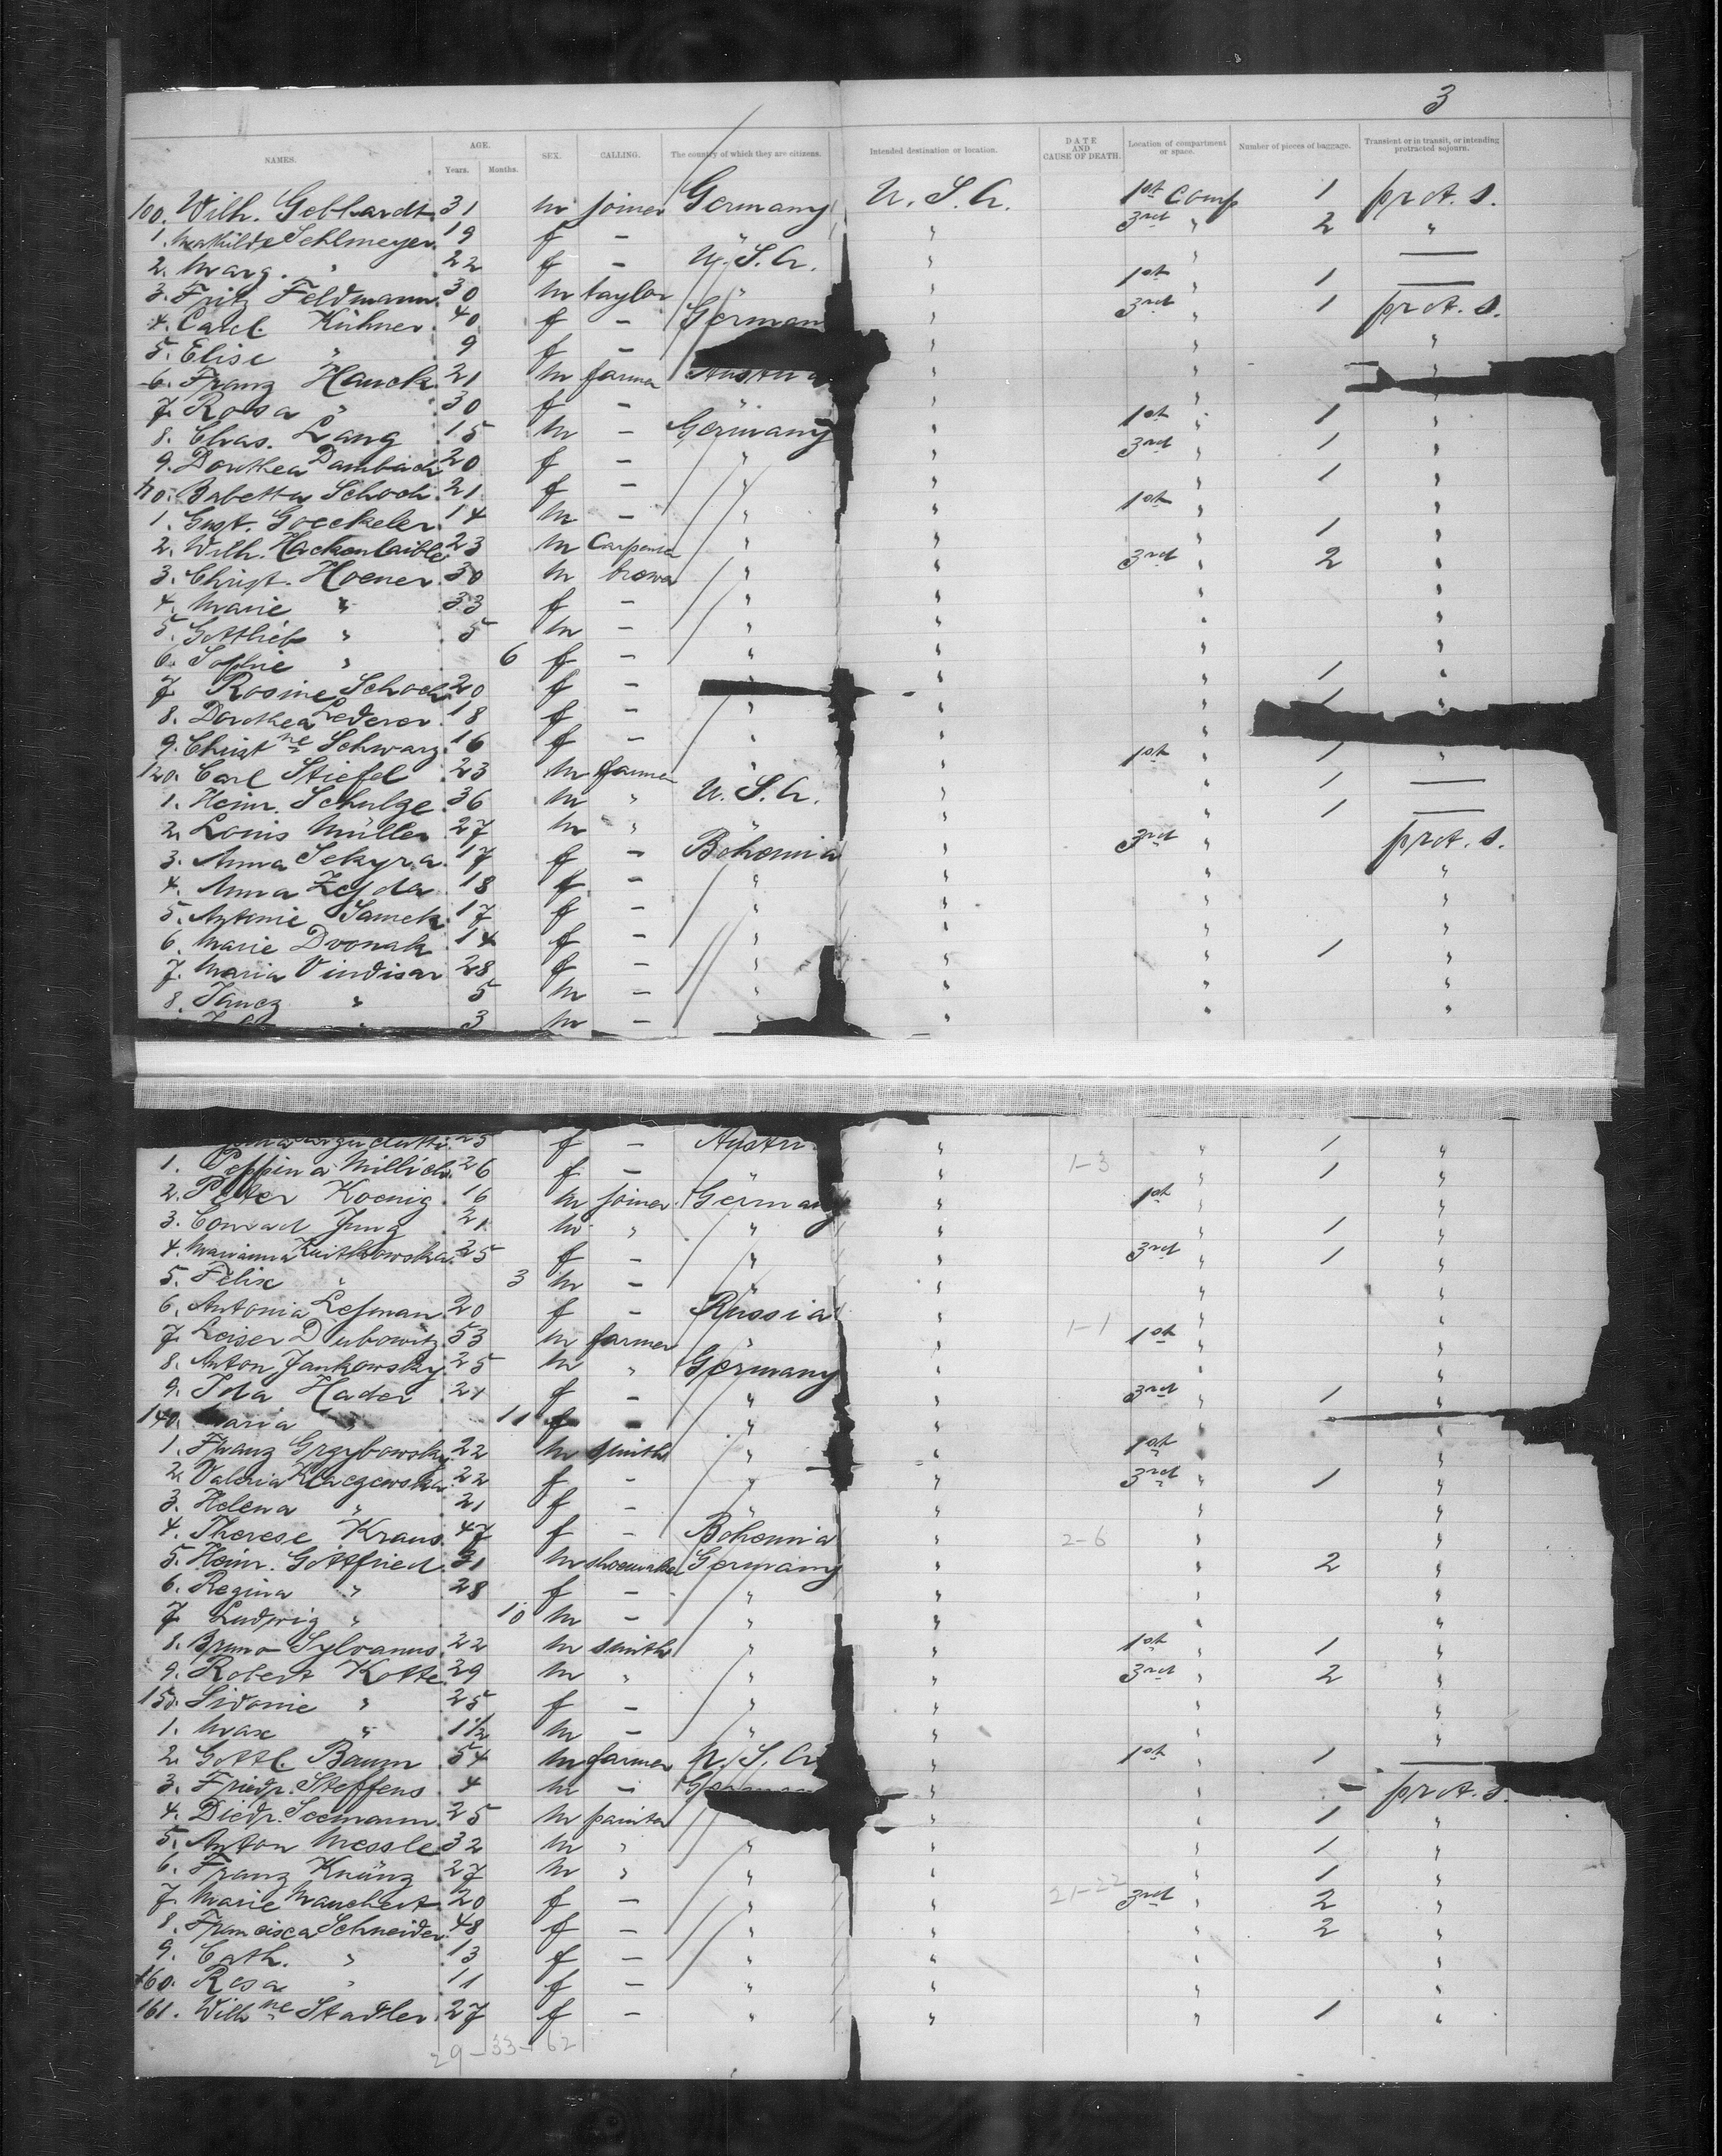 3
NAMES. AGE. Years. Months. SEX. CALLING. The country of which they are citizens. Intended destination or location. DATE AND CAUSE OF DEATH. Location of compartment or space. Number of pieces of baggage. Transient or in transit, or intending protracted sojourn.
100. Wilh. Gebhardt 31 m joiner Germany U. S. A. 1st Comp 1 prot. s.
1. Mathilde Sehlmeyer 19 f — " " 3rd " 2 "
2. Marg. " 22 f — U. S. A. " " —
3. Fritz Feldmann 30 m taylor " " 1st " 1 —
4. Carl. Kühner 40 f — German " 3rd " 1 prot. s.
5. Elise " 9 f — " " "
6. Franz Hauck 21 m farmer Austria " " "
7. Rosa " 30 f — " " " "
8. Chas. Lang 15 m — Germany " 1st " 1 "
9. Dorthea Dambach 20 f — " " 3rd " 1 "
110. Babetta Schoch 21 f — " " " 1 "
1. Gust. Goeckeler 14 m — " " 1st " "
2. Wilh. Hackenlaible 23 m Carpenter " " " 1 "
3. Christ. Hoener 30 m brewer " " 3rd " 2 "
4. Marie " 33 f — " " " "
5. Gottlieb " 5 m — " " " "
6. Sophie " 6 f — " " " "
7. Rosine Schoch 20 f — " " " 1 "
8. Dorthea Lederer 18 f — " " " 1 "
9. Christne Schwarz 16 f — " " "
120. Carl Stiefel 23 m farmer " " 1st " 1 "
1. Heinr. Schulze 36 m " U. S. A. " " 1 —
2. Louis Müller 27 m " " " " 1 —
3. Anna Sekyra 17 f — Bohemia " 3rd " prot. s.
4. Anna 18 f — " " " "
5. Antonie Samek 17 f — " " " "
6. Marie Dvorak 14 f — " " " "
7. Maria Vindisar 28 f — " " " 1 "
8. Janez " 5 m — " " " "
" 3 m — " " " "
25 f — Austri " " 1 "
1. Peppina Millich 26 f — " " 1-3 " 1 "
2. Peter Koenig 16 m joiner Germany " 1st " "
3. Conrad Jung 21 m " " " " 1 "
4. Marianna 25 f — " " 3rd " 1 "
5. Felix " 3 m — " " " "
6. Antonia Lesman 20 f — Russia " " "
7. Leiser Dubowitz 53 m farmer " " 1-1 1st " "
8. Anton Jankowsky 25 m " Germany " " "
9. Ida Hader 24 f — " " 3rd " 1 "
140. Maria " 11 f — " " "
1. Franz Grzybowsky 22 m smith " " 1st " "
2. Valeria Klaczewska 22 f — " " 3rd " 1 "
3. Helena " 21 f — " " " "
4. Therese Kraus 47 f — Bohemia " 2-6 " "
5. Heinr. Gottfried 31 m shoemaker Germany " " 2 "
6. Regina " 28 f — " " " "
7. Ludwig " 10 m — " " " "
8. Bruno Sylvanus 22 m smith " " 1st " 1 "
9. Robert Kotte 29 m " " " 3rd " 2 "
150. Sidonie " 25 f — " " " "
1. Max " 1½ m — " " " "
2. Gottl. Baum 54 m farmer U. S. A. " 1st " 1 —
3. Friedr. Steffens 4 m — German " " — prot. s.
4. Diedr. Seemann 25 m painter " " 1 "
5. Anton Messle 32 m " " " " 1 "
6. Franz Knünz 27 m " " " " 1 "
7. Marie Manchert 20 f — " " 21-22 3rd " 2 "
8. Francisca Schneider 48 f — " " " 2 "
9. Cath. " 13 f — " " " "
160. Rosa " 11 f — " " " "
161. Wilhne Stadler 27 f — " " " 1 "
29-33-62